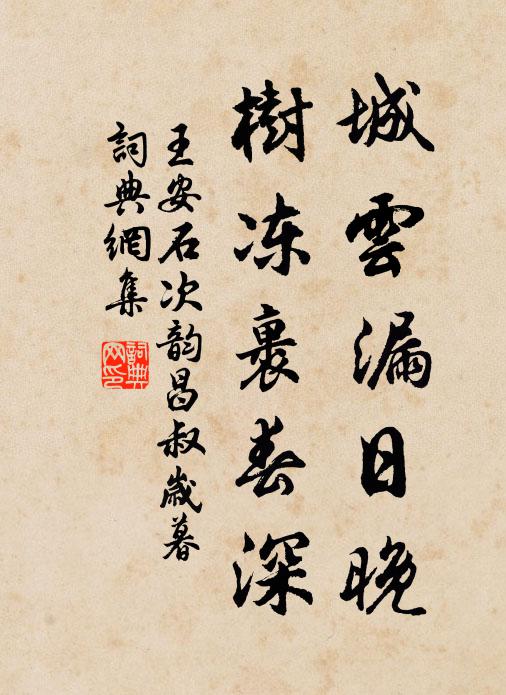 城雲漏日晚
樹凍裹春深
王安石次韵昌叔歲暮
詞典網集
詞典网印